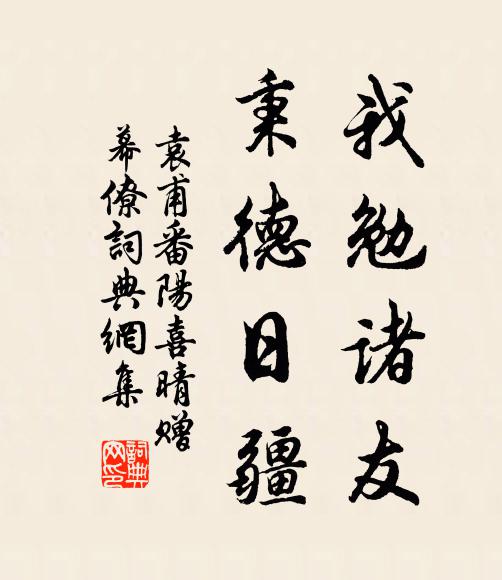 我勉诸友
秉德日疆
袁甫番陽喜晴赠
幕僚詞典網集
詞典网印